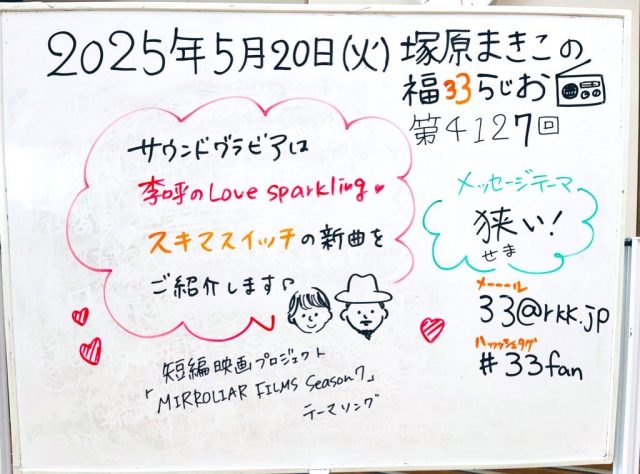 2025年5月20日(火)
塚原まきこの
福33らじお
第4127回
サウンドグラビアは
李呼のLove sparkling
スキマスイッチの新曲を
ご紹介します♪
短編映画プロジェクト
「MIRRORLIAR FILMS Season7」
テーマソング
メッセージテーマ
狭い!
せま
メーーール
33@rkk.jp
ハッシュタグ
#33fan